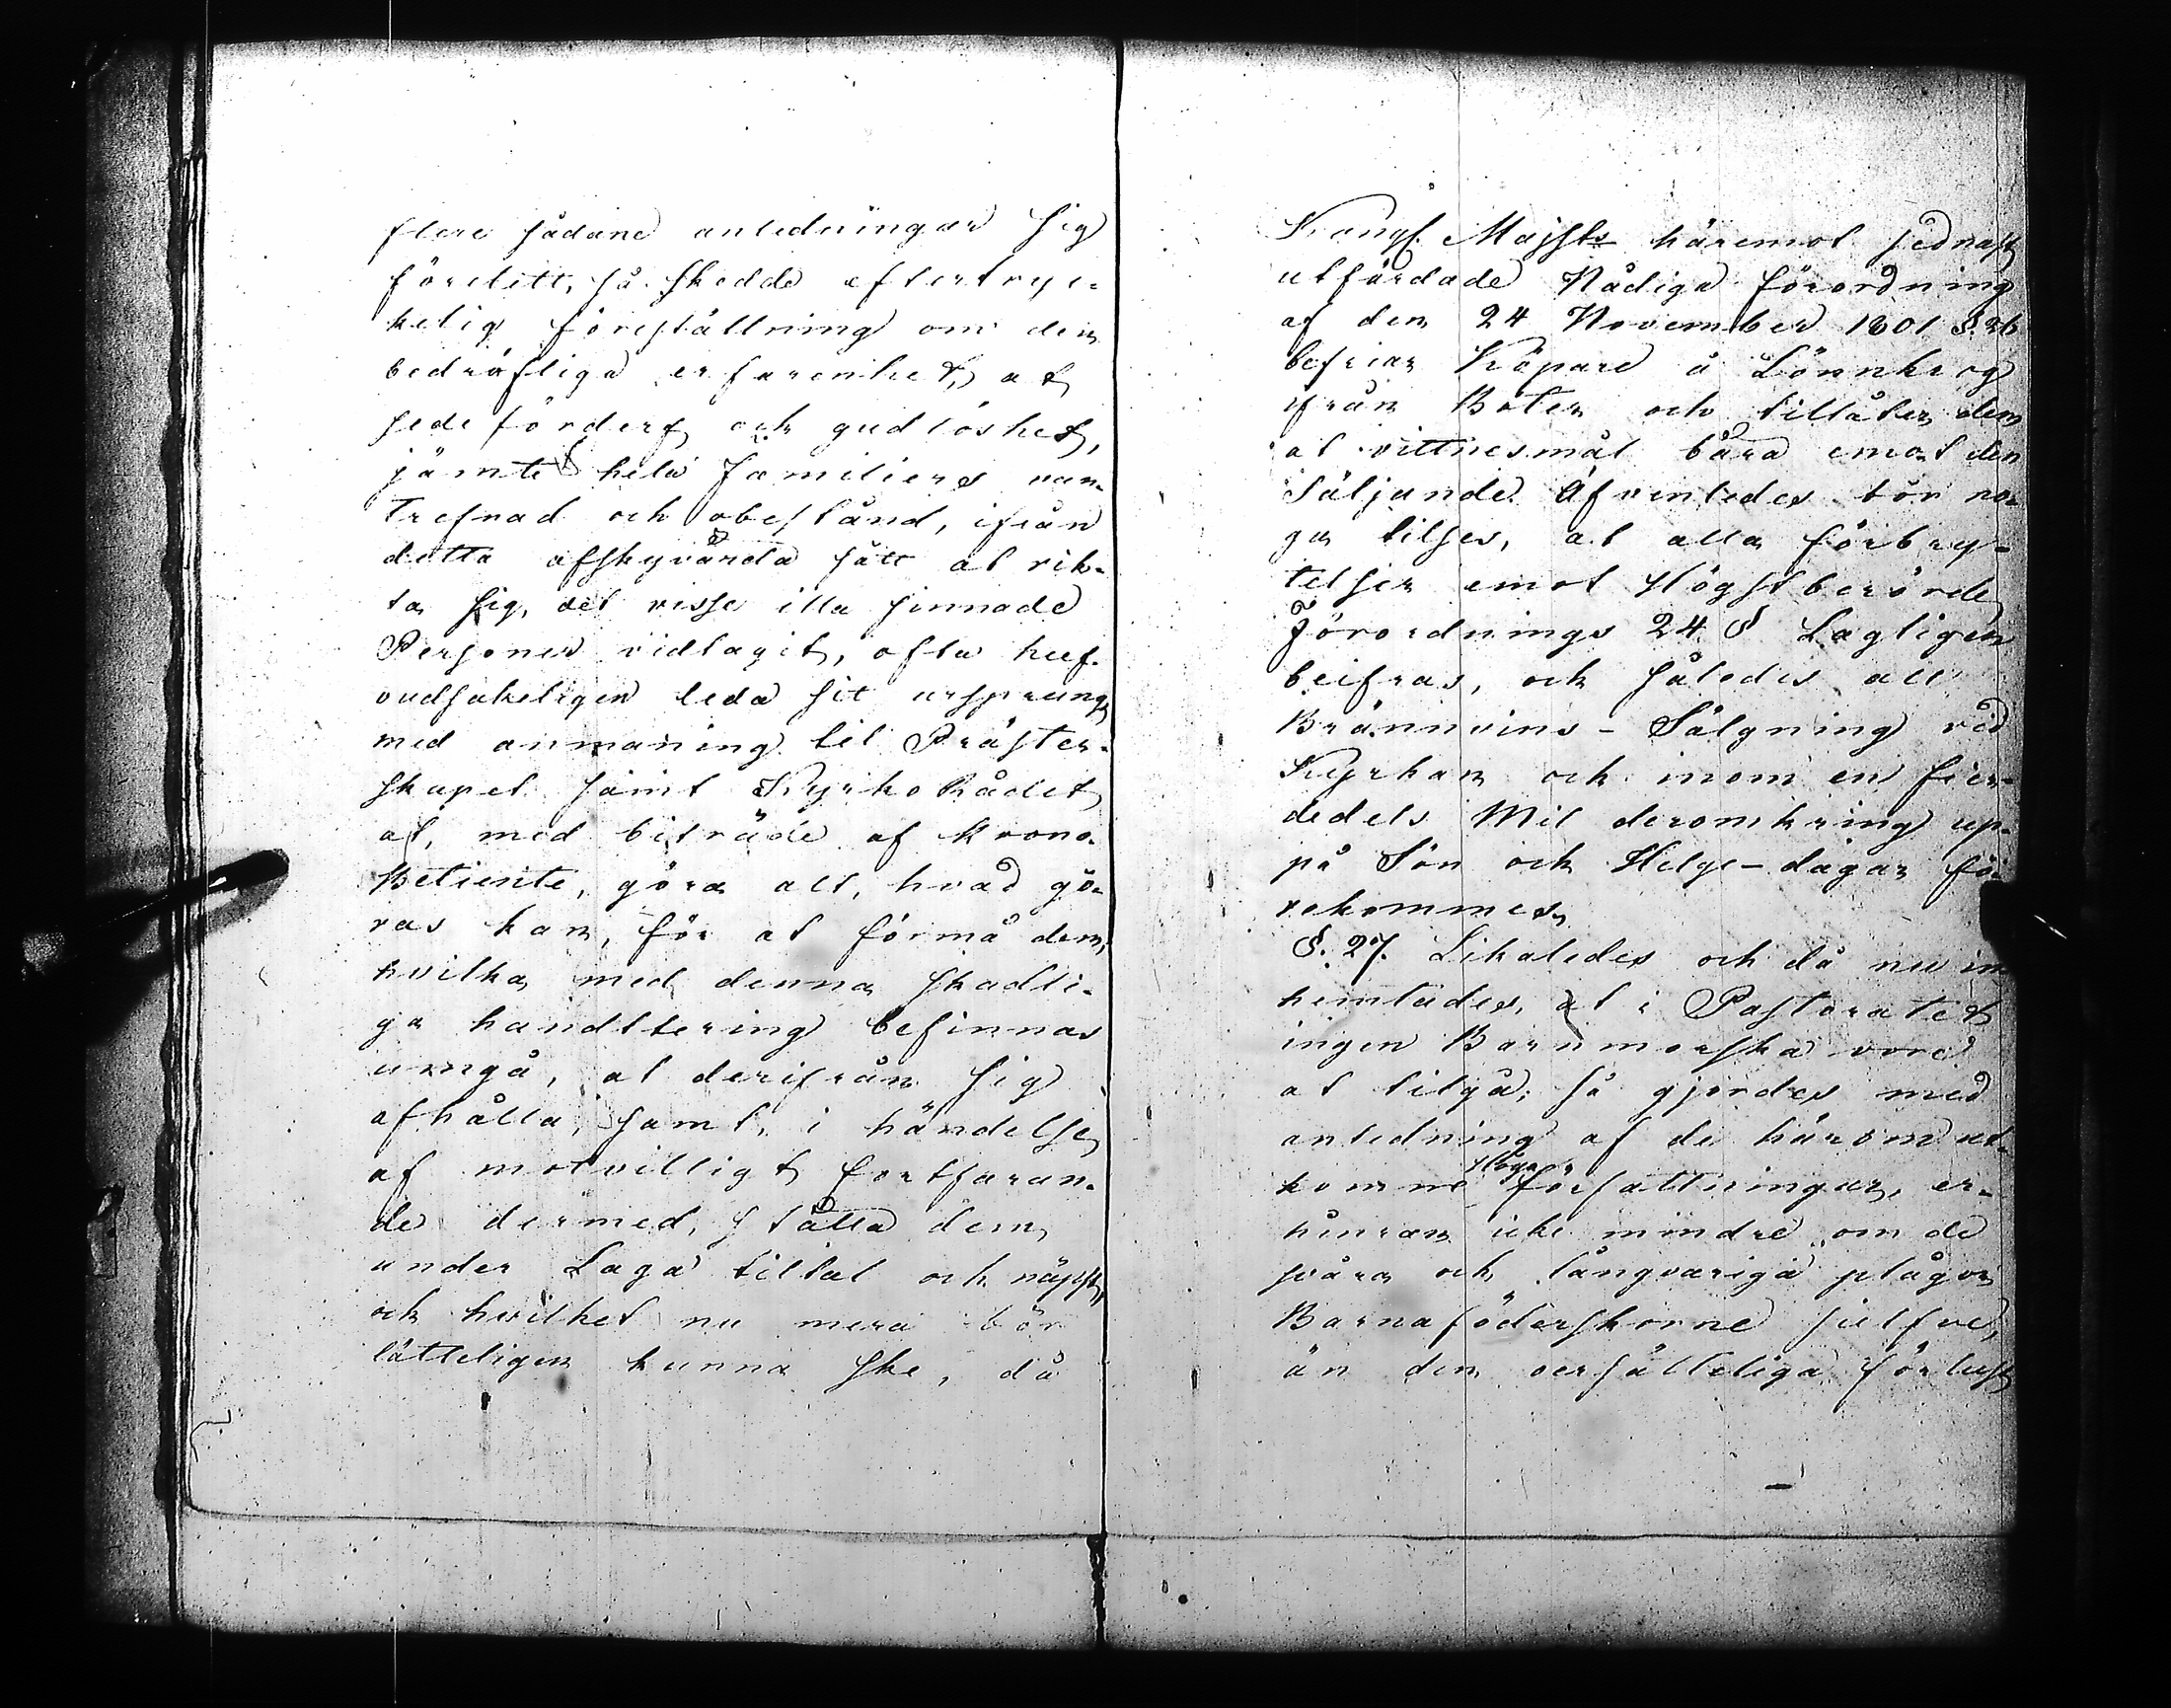 flere sådane anledningar sig
företett, så skedde eftertryc-
kelig föreställning om den
bedröfliga erfarenhet, at
sedeförderf och gudlöshet,
jämte hela Familiers van-
trefnad och obestånd, ifrån
detta afskyvärda sätt at rik-
ta sig, det visse illa sinnade
Personer vidtagit, ofta huf-
vudsakeligen leda sit ursprung,
med anmaning til Präster-
skapet samt KyrkoRådet
at, med biträde af Krono-
Betiente, göra alt, hvad gö-
ras kan, för at förmå dem,
hvilka med denna skadli-
ga handttering befinnas
umgå, at derifrån sig
afhålla, samt, i händelse
af motvilligt fortfaran-
de dermed, ställa dem
under Laga tilltal och näpst,
och hvilket nu mera bör
lätteligen kunna ske, då
Kongl. Majsts häremot sednast
utfärdade Nådiga förordning
af den 24 November 1801 §. 26
befriar Köpare å Lönnkrog
ifrån Böter och tillåter dem
at vittnesmål bära emot den
Säljande. Äfvenledes bör no-
ga tilses, at alla förbry-
telser emot Högstberörde
Förordnings 24 § Lagligen
beifras, och således all
Brännvins-Sälgning vid
Kyrkan och inom en fier-
dedels Mil deromkring up-
på Sön och Helge-dagar fö-
rekommes.
§. 27. Likaledes och då nu in
hemtades, at i Pastoratet
ingen Barnmorska vore
at tilgå; så gjordes med
anledning af de härom ut-
komne Höga författningar, er-
hinran icke mindre om de
svåra och långvariga plågor
Barnaföderskorne sielfve,
än den oersätteliga förlust